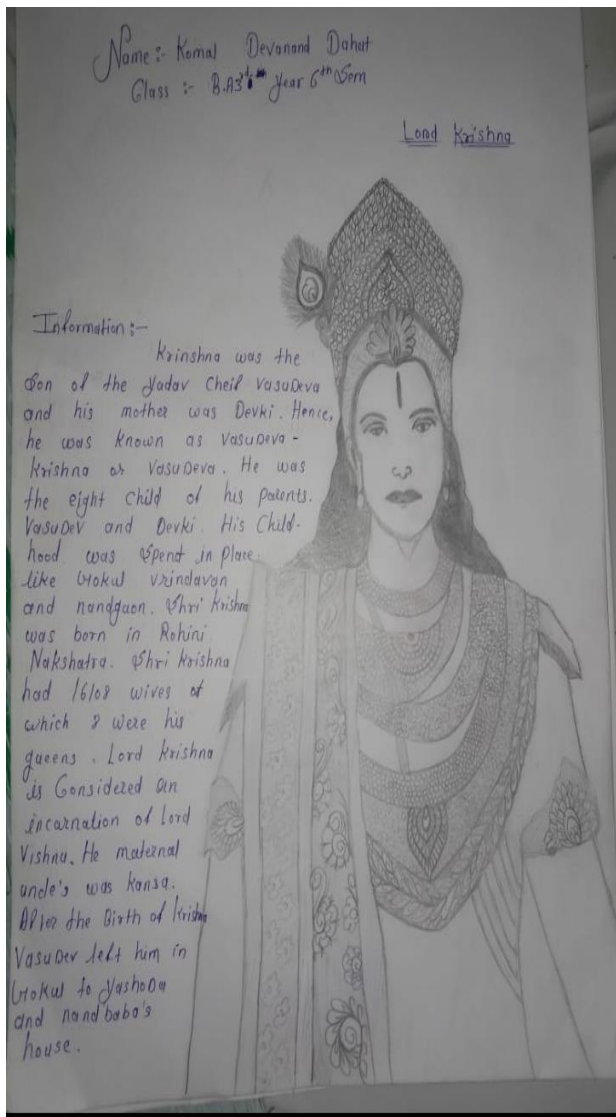 Name :- Komal Devanand Dahat
Class :- B.A 3rd Year 6th Sem
Lord Krishna
Information :-
Krinshna was the
Son of the Yadav Cheif VasuDeva
and his mother was Devki. Hence,
he was known as VasuDeva -
Krishna or VasuDeva. He was
the eight child of his parents.
VasuDev and Devki. His Child-
hood was Spent in place
like Gokul vrindavan
and nandgaon. Shri Krishna
was born in Rohini
Nakshatra. Shri Krishna
had 16108 wives of
which 8 were his
queens. Lord Krishna
is Considered an
incarnation of Lord
Vishnu. He maternal
uncle's was Kansa.
After the Birth of Krishna
VasuDev left him in
Gokul to YashoDa
and nandbaba's
house.